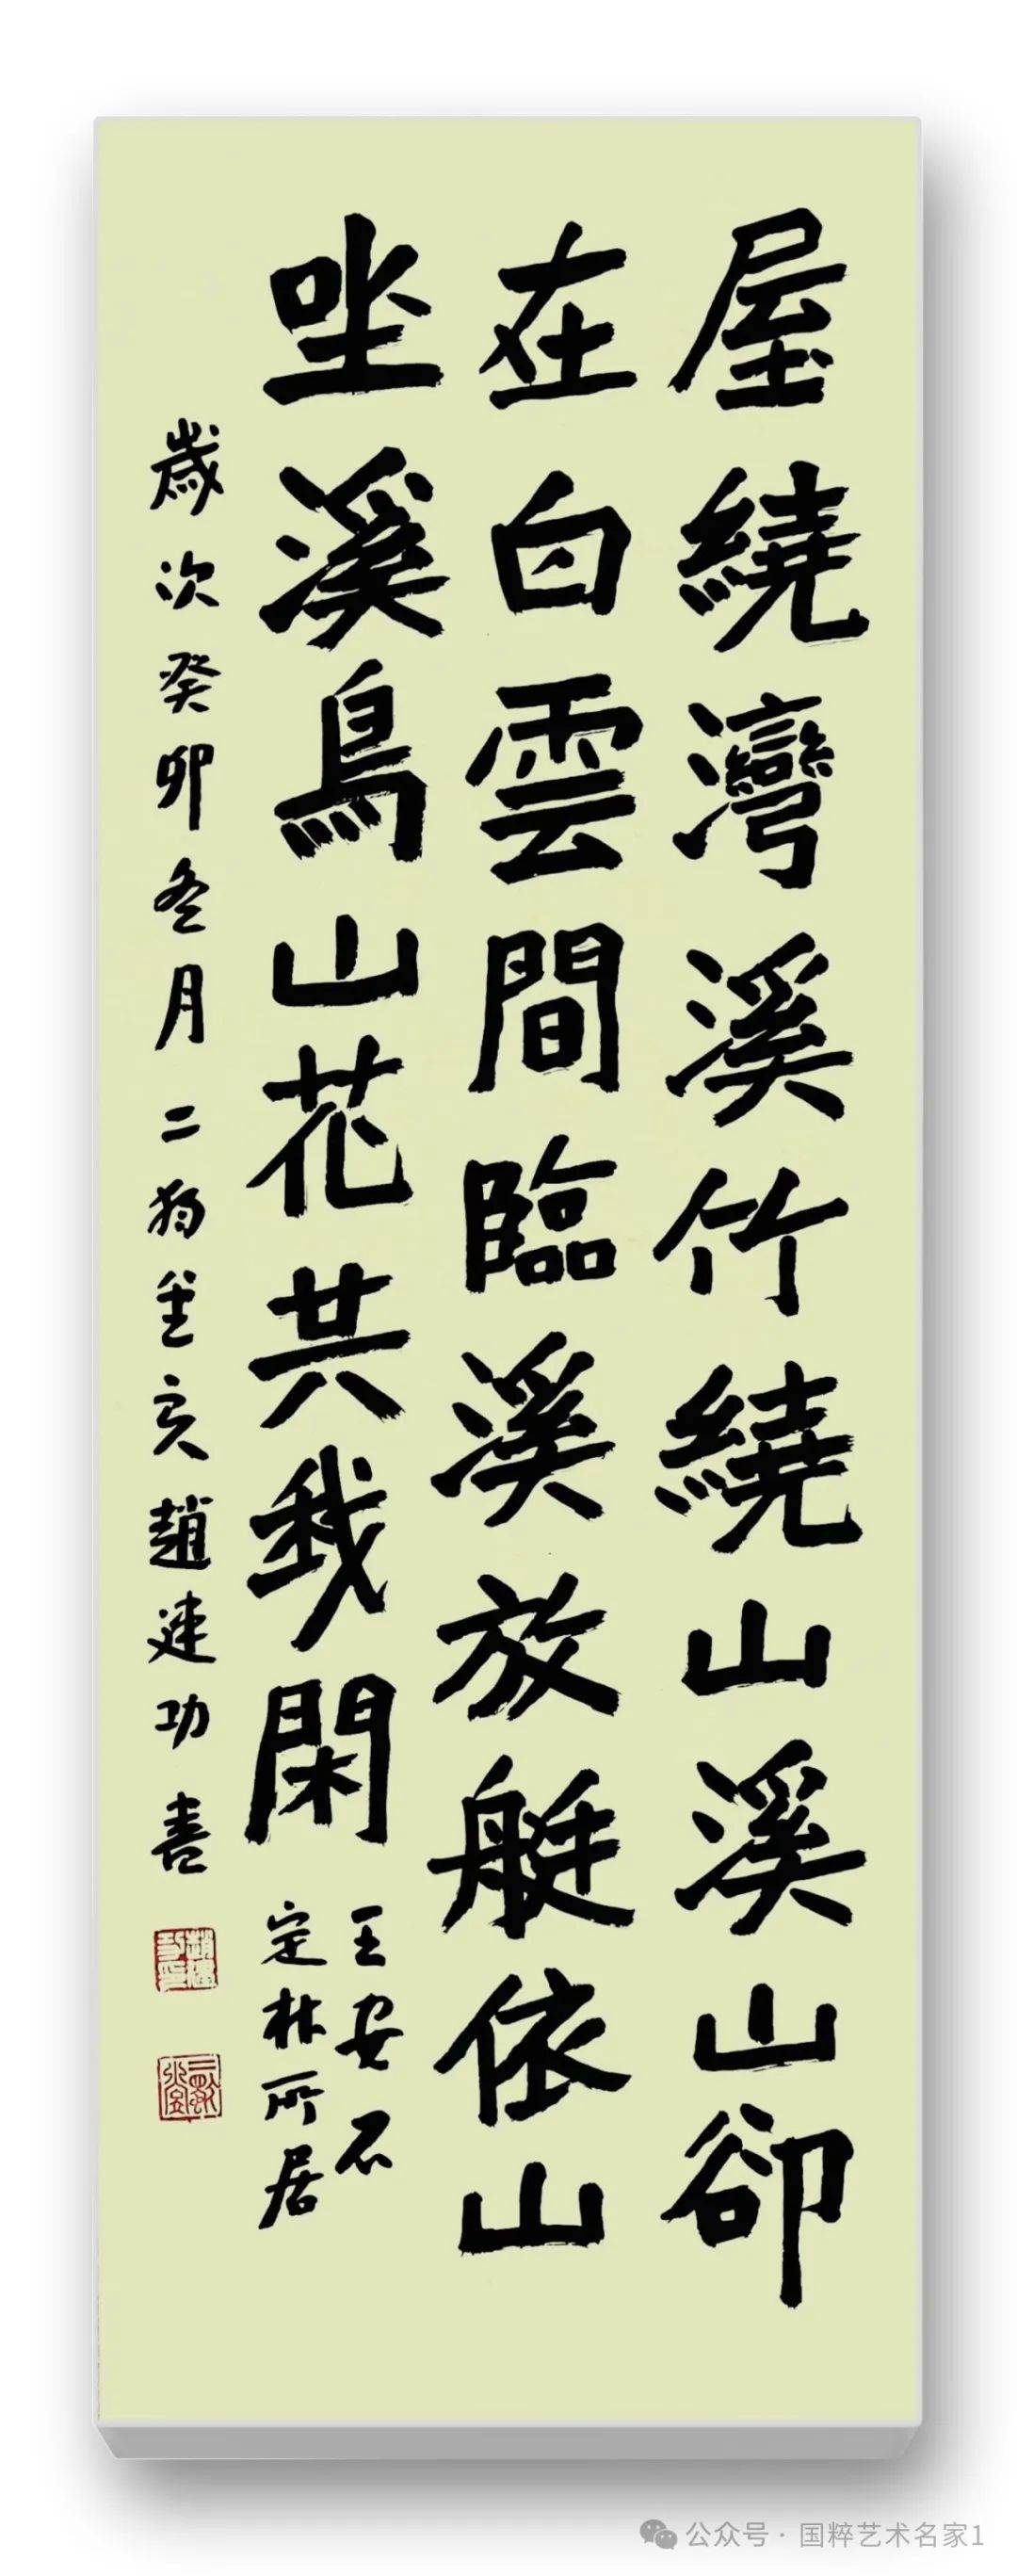 屋繞灣溪竹繞山溪山卻
在白雲間臨溪放艇依山
坐溪鳥山花共我閑
王安石
定林所居
歲次癸卯冬月二 趙建功書
公众号·国粹艺术名家1